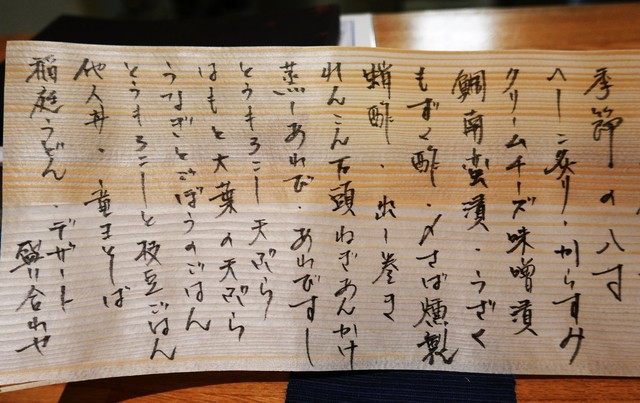 季節の八寸
へしこ炙り・からすみ
クリームチーズ味噌漬
鯛南蛮漬・うざく
もずく酢・〆さば燻製
蛸酢・出し巻き
れんこん万頭ねぎあんかけ
蒸しあわび・あわびすし
とうもろこし天ぷら
はもと大葉の天ぷら
うなぎとごぼうのごはん
とうもろこしと枝豆ごはん
他人丼・竜王そば
稲庭うどん・デザート
盛り合わせ